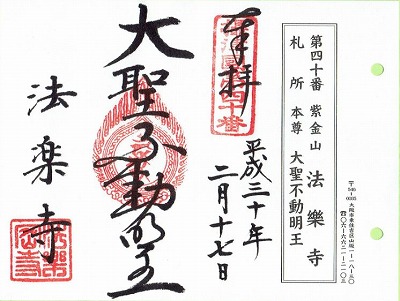 第四十番 紫金山 法樂寺
札所 本尊 大聖不動明王
〒546-0035 大阪市東住吉区山坂一-一八-三〇
☎〇六-六六二一-二一〇三
奉拝
平成三十年
二月十七日
大聖不動明王
法楽寺